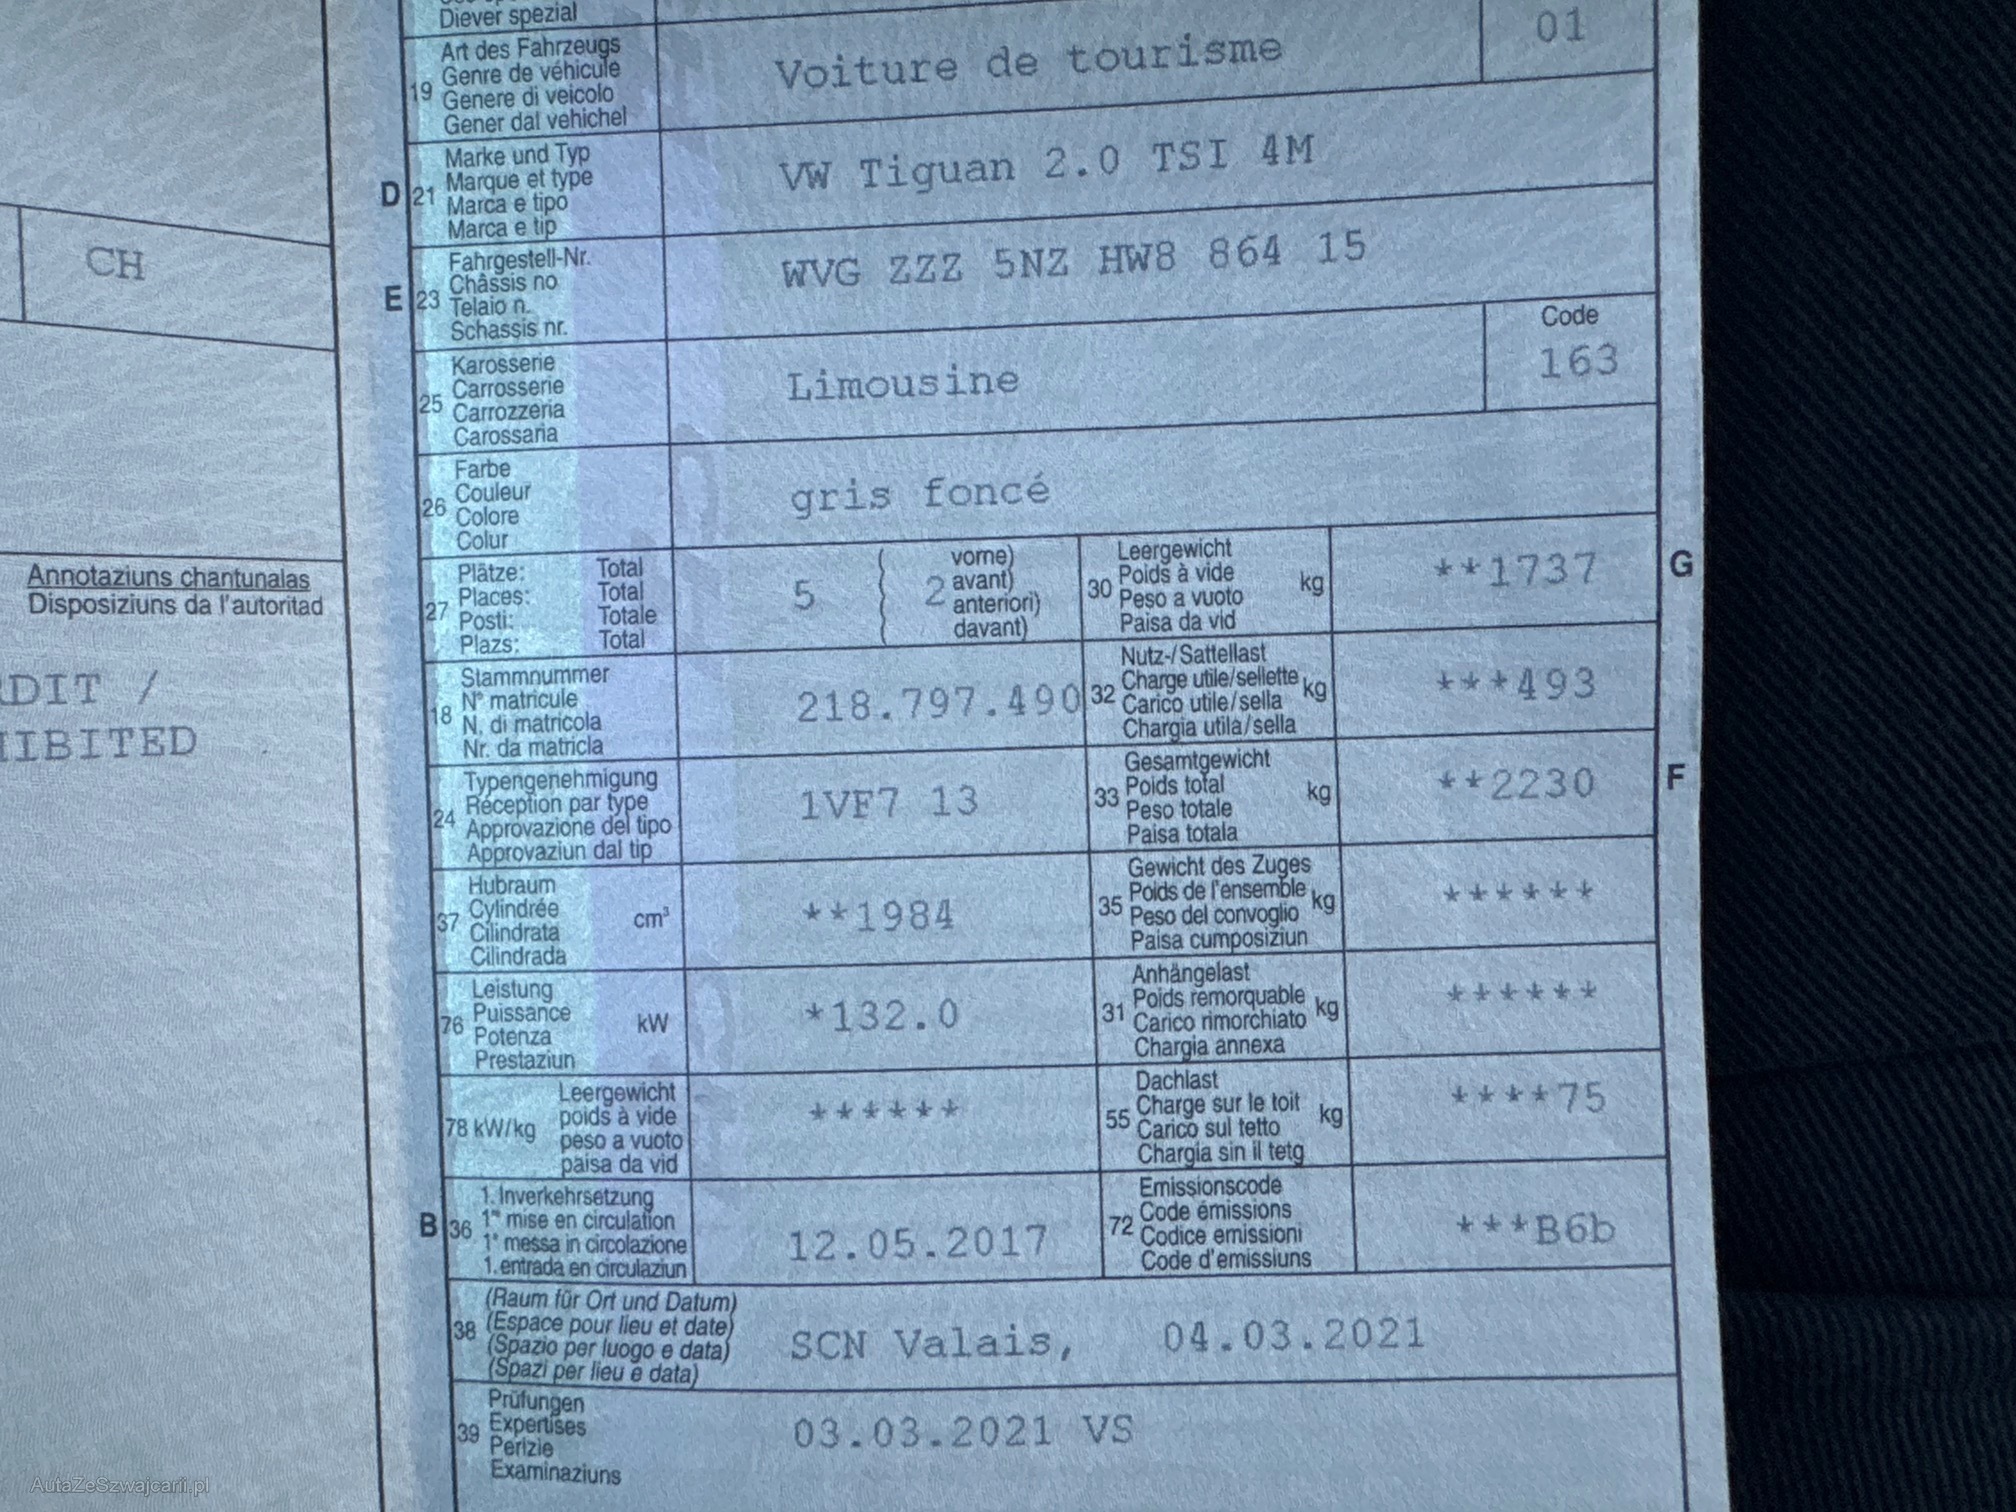 Diever spezial
19 Art des Fahrzeugs
Genre de véhicule
Genere di veicolo
Gener dal vehichel
Voiture de tourisme
01
D 21 Marke und Typ
Marque et type
Marca e tipo
Marca e tip
VW Tiguan 2.0 TSI 4M
E 23 Fahrgestell-Nr.
Châssis no
Telaio n.
Schassis nr.
WVG ZZZ 5NZ HW8 864 15
25 Karosserie
Carrosserie
Carrozzeria
Carossaria
Limousine
Code
163
26 Farbe
Couleur
Colore
Colur
gris foncé
27 Plätze: Total
Places: Total
Posti: Totale
Plazs: Total
5
2
vorne)
avant)
anteriori)
davant)
30 Leergewicht
Poids à vide
Peso a vuoto
Paisa da vid
kg
**1737
G
18 Stammnummer
N° matricule
N. di matricola
Nr. da matricla
218.797.490
32 Nutz-/Sattellast
Charge utile/sellette
Carico utile/sella
Chargia utila/sella
kg
***493
24 Typengenehmigung
Réception par type
Approvazione del tipo
Approvaziun dal tip
1VF7 13
33 Gesamtgewicht
Poids total
Peso totale
Paisa totala
kg
**2230
F
37 Hubraum
Cylindrée
Cilindrata
Cilindrada
cm³
**1984
35 Gewicht des Zuges
Poids de l'ensemble
Peso del convoglio
Paisa cumposiziun
kg
******
76 Leistung
Puissance
Potenza
Prestaziun
kW
*132.0
31 Anhängelast
Poids remorquable
Carico rimorchiato
Chargia annexa
kg
******
78 kW/kg
Leergewicht
poids à vide
peso a vuoto
paisa da vid
******
55 Dachlast
Charge sur le toit
Carico sul tetto
Chargia sin il tetg
kg
****75
B 36 1. Inverkehrsetzung
1re mise en circulation
1a messa in circolazione
1. entrada en circulaziun
12.05.2017
72 Emissionscode
Code émissions
Codice emissioni
Code d'emissiuns
***B6b
38 (Raum für Ort und Datum)
(Espace pour lieu et date)
(Spazio per luogo e data)
(Spazi per lieu e data)
SCN Valais, 04.03.2021
39 Prüfungen
Expertises
Perizie
Examinaziuns
03.03.2021 VS
CH
Annotaziuns chantunalas
Disposiziuns da l'autoritad
DIT /
IBITED
AutaZeSzwajcarii.pl